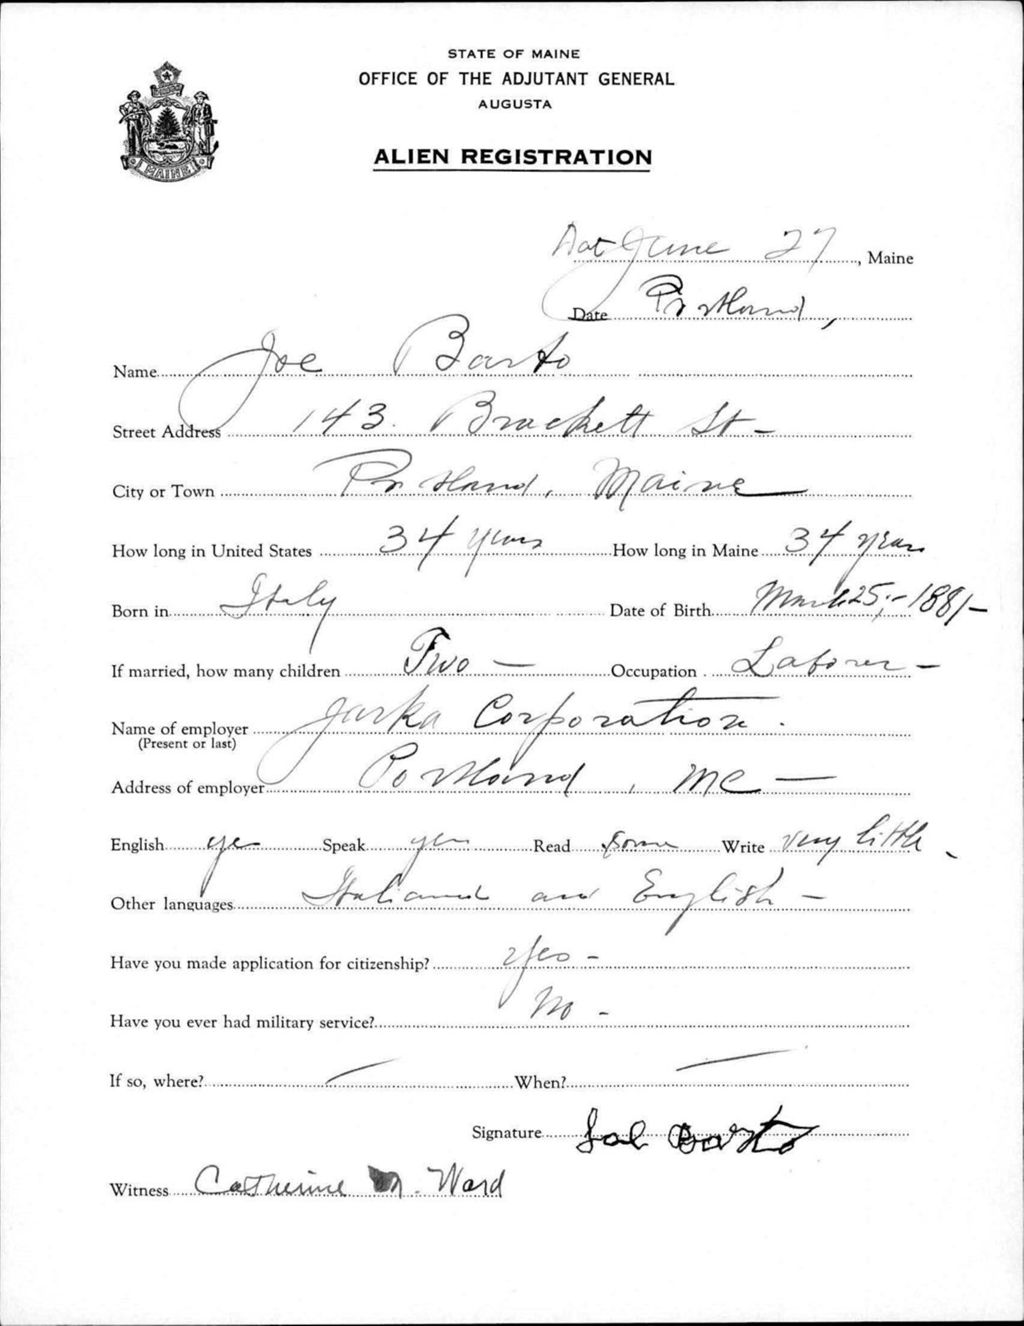 STATE OF MAINE
OFFICE OF THE ADJUTANT GENERAL
AUGUSTA
ALIEN REGISTRATION
MAINE
June 27, Maine
Date Portland,
Name Joe Barto
Street Address 143. Brackett St -
City or Town Portland, Maine
How long in United States 34 years How long in Maine 34 years
Born in Italy Date of Birth March 25, - 1881 -
If married, how many children Two - Occupation Laborer -
Name of employer Jarka Corporation.
(Present or last)
Address of employer Portland, Me -
English yes Speak yes Read some Write very little -
Other languages and English -
Have you made application for citizenship? Yes -
Have you ever had military service? No -
If so, where? - When? -
Signature Barto
Witness Catherine M. Ward